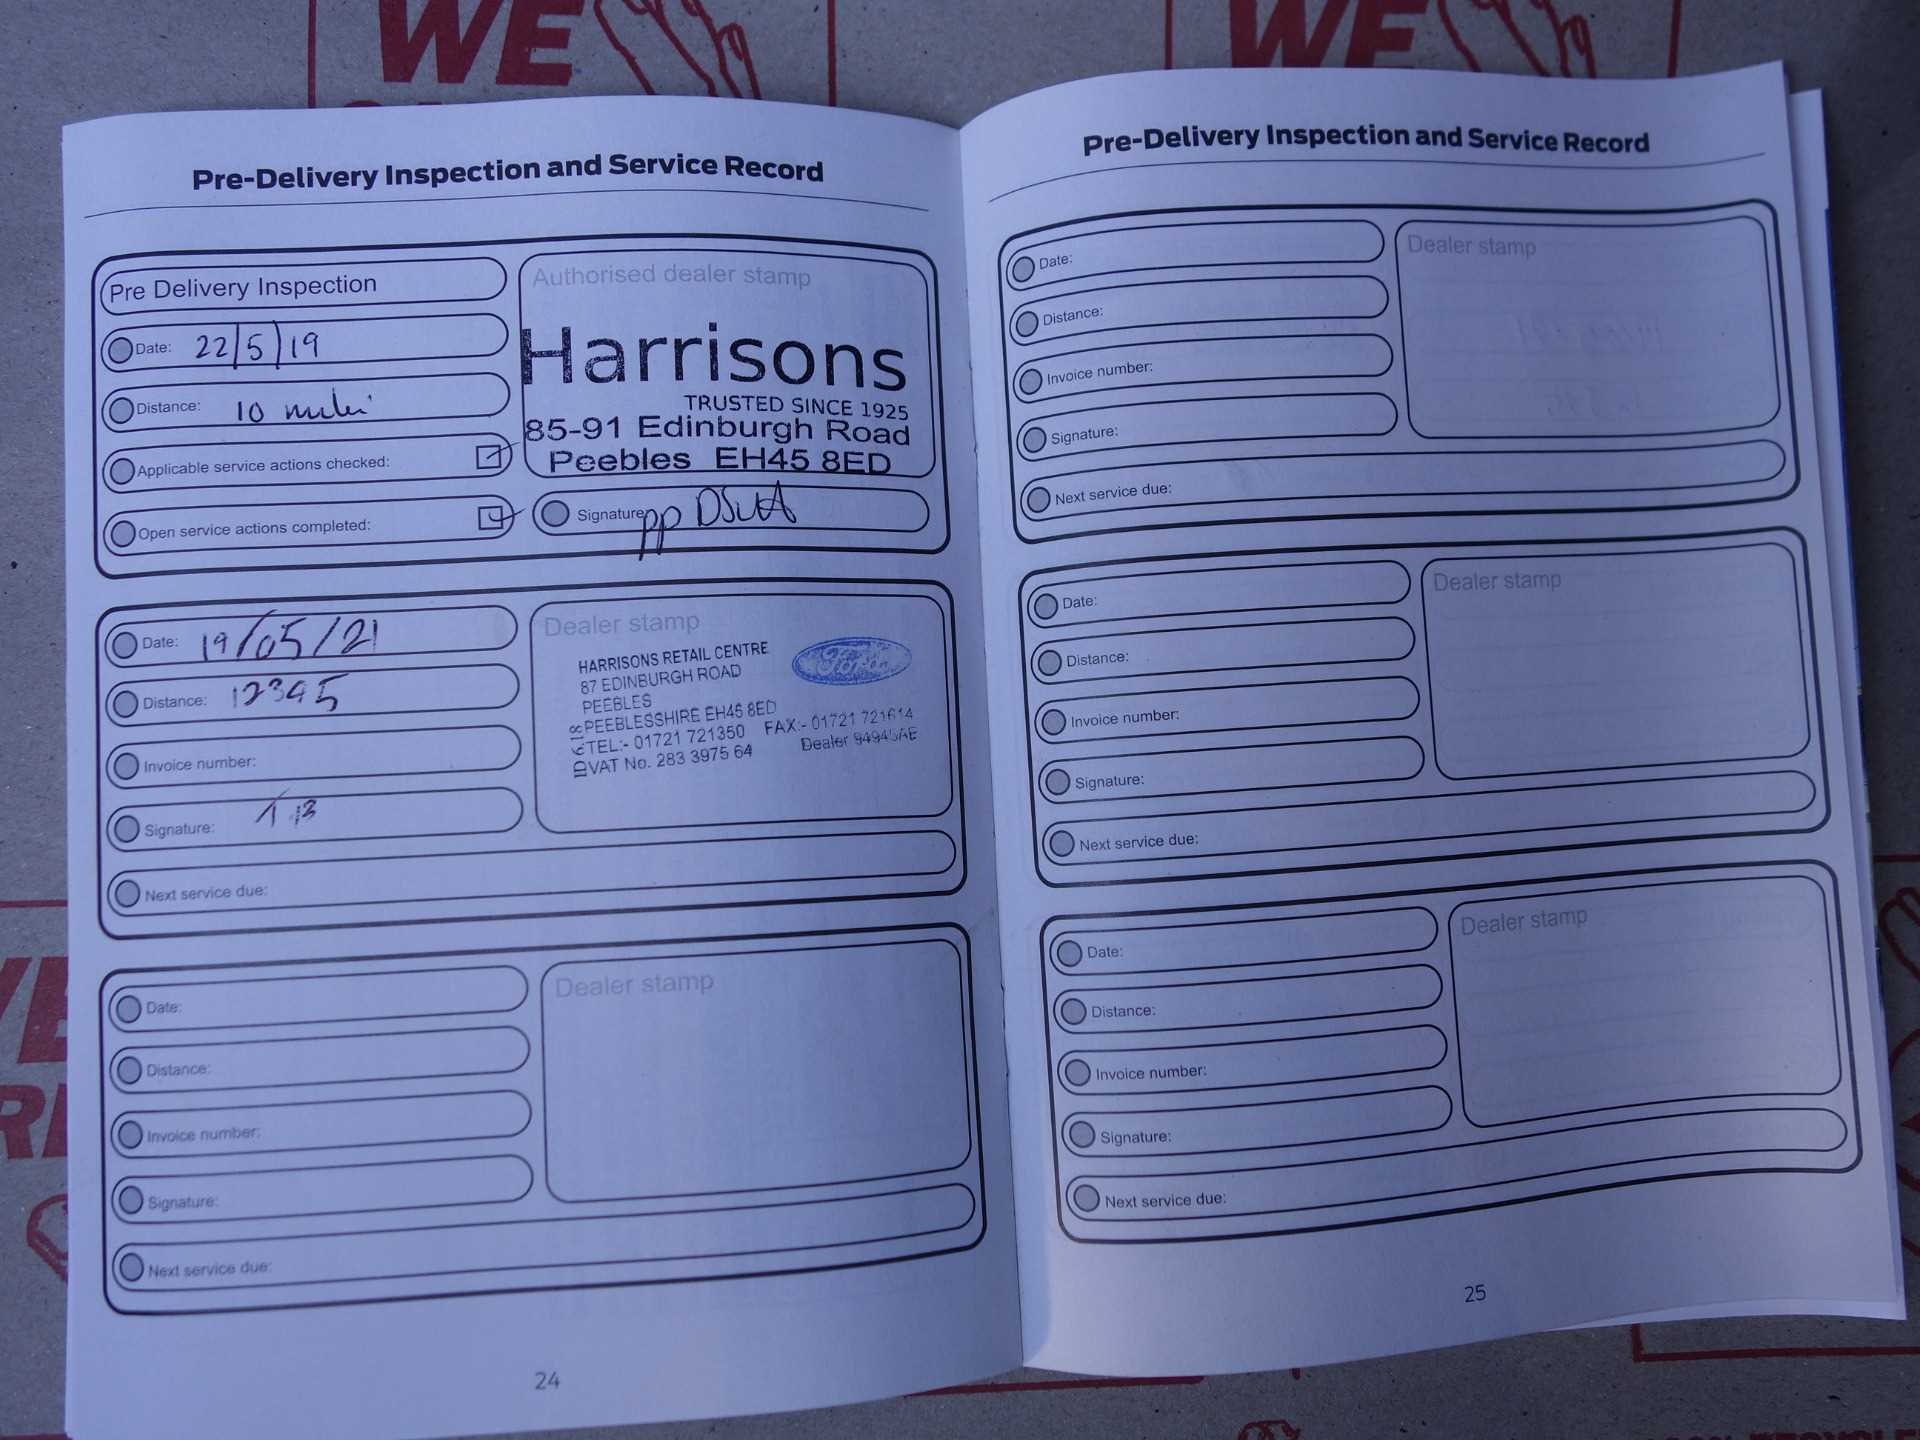 WE
WE
Pre-Delivery Inspection and Service Record
Pre Delivery Inspection
Date: 22/5/19
Distance: 10 miles
Applicable service actions checked:
Open service actions completed:
Authorised dealer stamp
Harrisons
TRUSTED SINCE 1925
85-91 Edinburgh Road
Peebles EH45 8ED
Signature pp
Date: 19/05/21
Distance: 12345
Invoice number:
Signature:
Next service due:
Dealer stamp
HARRISONS RETAIL CENTRE
87 EDINBURGH ROAD
PEEBLES
PEEBLESSHIRE EH45 8ED
TEL:- 01721 721350 FAX:- 01721 721614
VAT No. 283 3975 64 Dealer
Date:
Distance:
Invoice number:
Signature:
Next service due:
Dealer stamp
24
Pre-Delivery Inspection and Service Record
Date:
Distance:
Invoice number:
Signature:
Next service due:
Dealer stamp
Date:
Distance:
Invoice number:
Signature:
Next service due:
Dealer stamp
Date:
Distance:
Invoice number:
Signature:
Next service due:
Dealer stamp
25